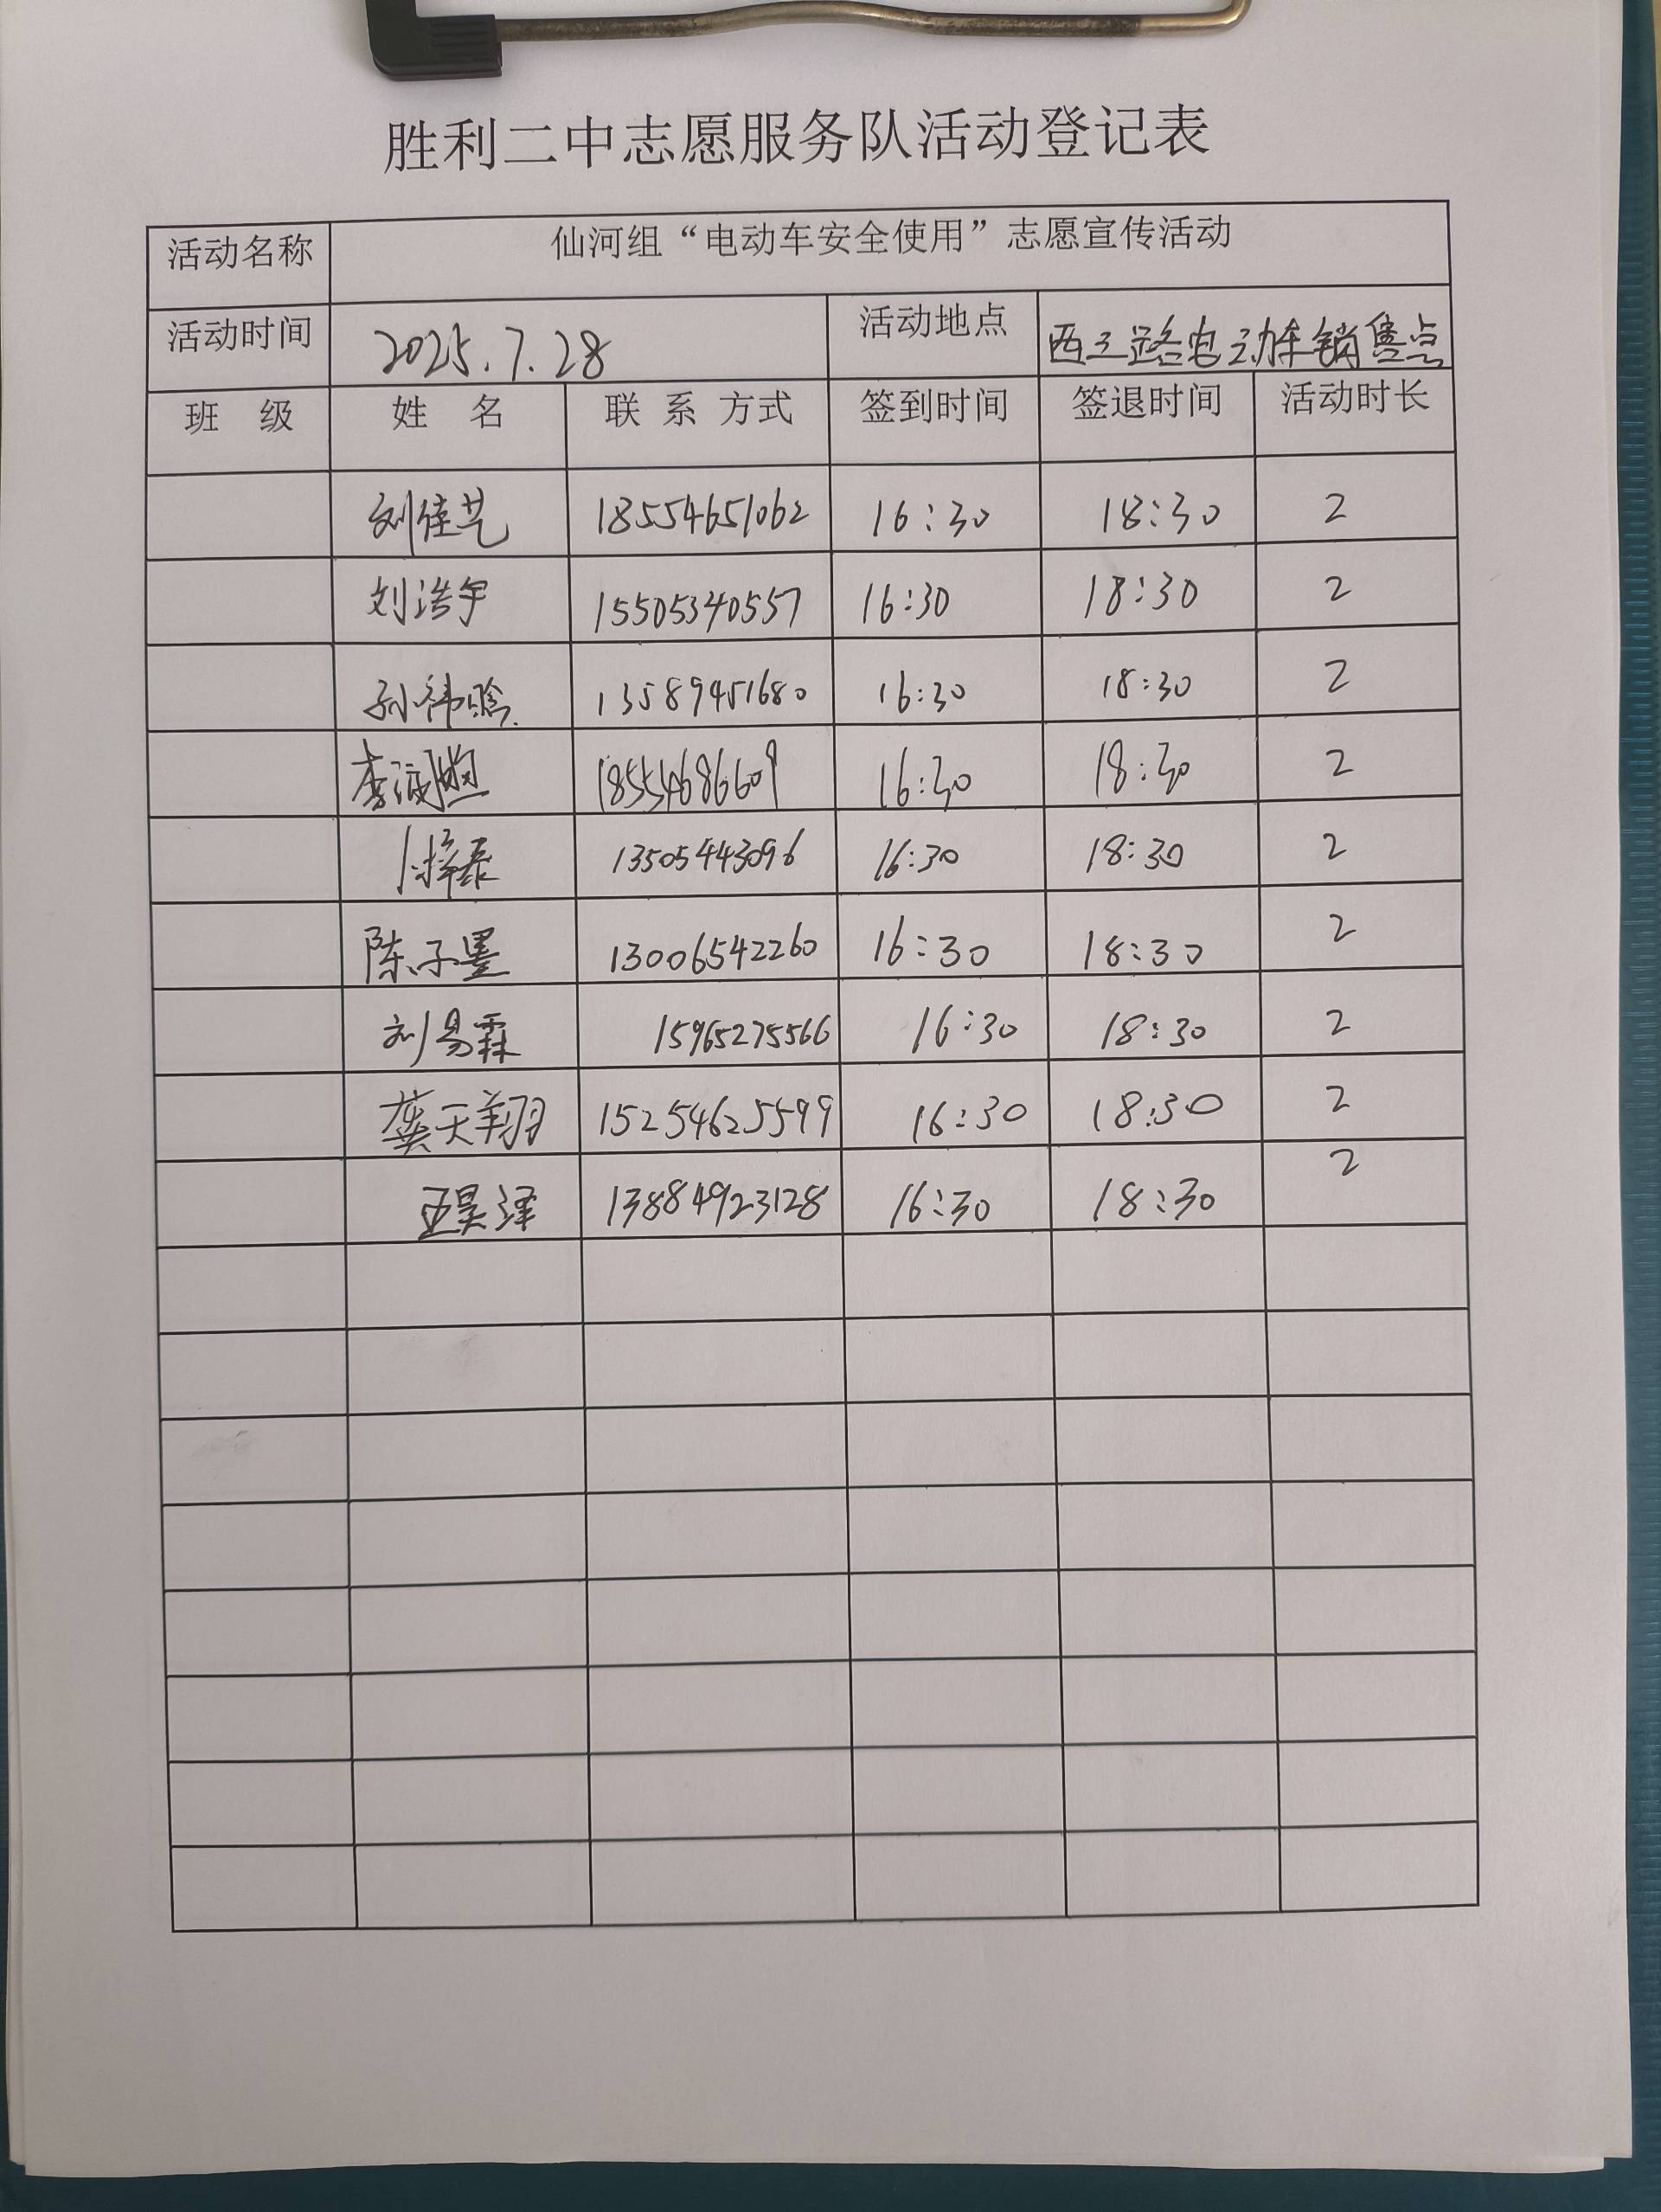 胜利二中志愿服务队活动登记表
活动名称 仙河组“电动车安全使用”志愿宣传活动
活动时间 2025.7.28 活动地点 西三路电动车销售点
班 级 姓 名 联 系 方式 签到时间 签退时间 活动时长
刘佳艺 18554651062 16:30 18:30 2
刘浩宇 15505340557 16:30 18:30 2
孙祎晗 13589451680 16:30 18:30 2
李 18554686609 16:30 18:30 2
梓泰 13505443096 16:30 18:30 2
陈子墨 13006542260 16:30 18:30 2
刘易霖 15965275566 16:30 18:30 2
龚天翔 15254625599 16:30 18:30 2
王昊泽 13884923128 16:30 18:30 2